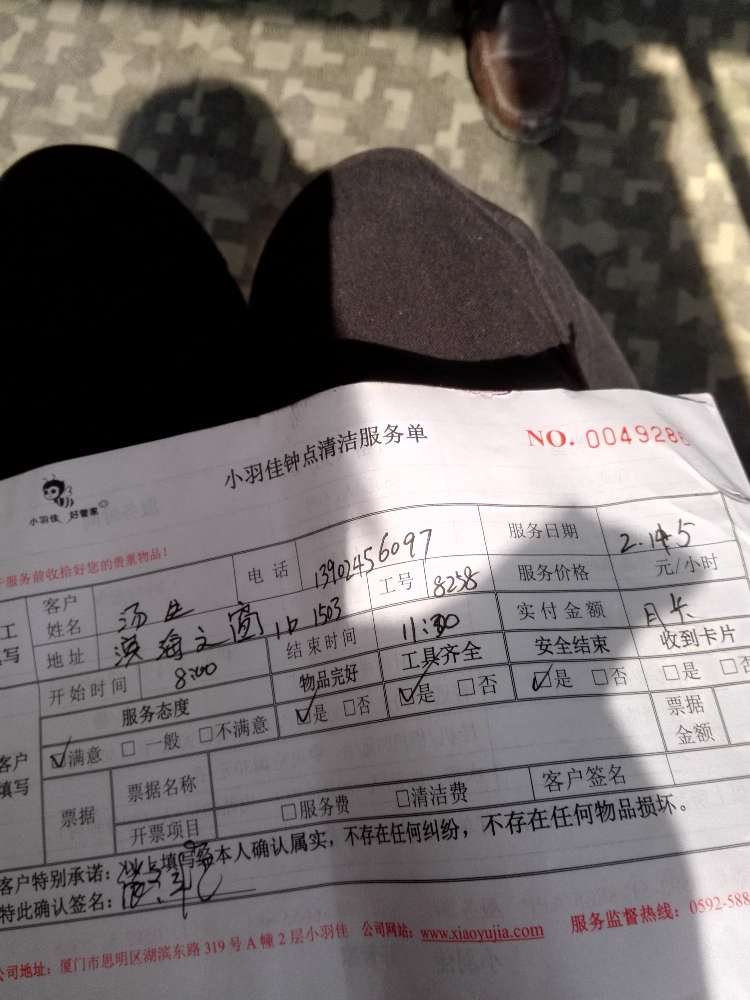 小羽佳钟点清洁服务单
NO. 0049286
小羽佳 好管家
服务前收拾好您的贵重物品！
客户姓名 汤生 电话 13902456097 服务日期 2.14.5
地址 滨海之窗 1503 工号 8258 服务价格 元/小时
开始时间 8:00 结束时间 11:30 实付金额 月卡
服务态度 物品完好 工具齐全 安全结束 收到卡片
满意 □一般 □不满意 是 □否 是 □否 是 □否 □是 □否
票据 票据名称 票据金额
开票项目 □服务费 □清洁费 客户签名
客户特别承诺：填写经本人确认属实，不存在任何纠纷，不存在任何物品损坏。
特此确认签名：
公司地址：厦门市思明区湖滨东路319号A幢2层小羽佳 公司网站：www.xiaoyujia.com 服务监督热线：0592-588